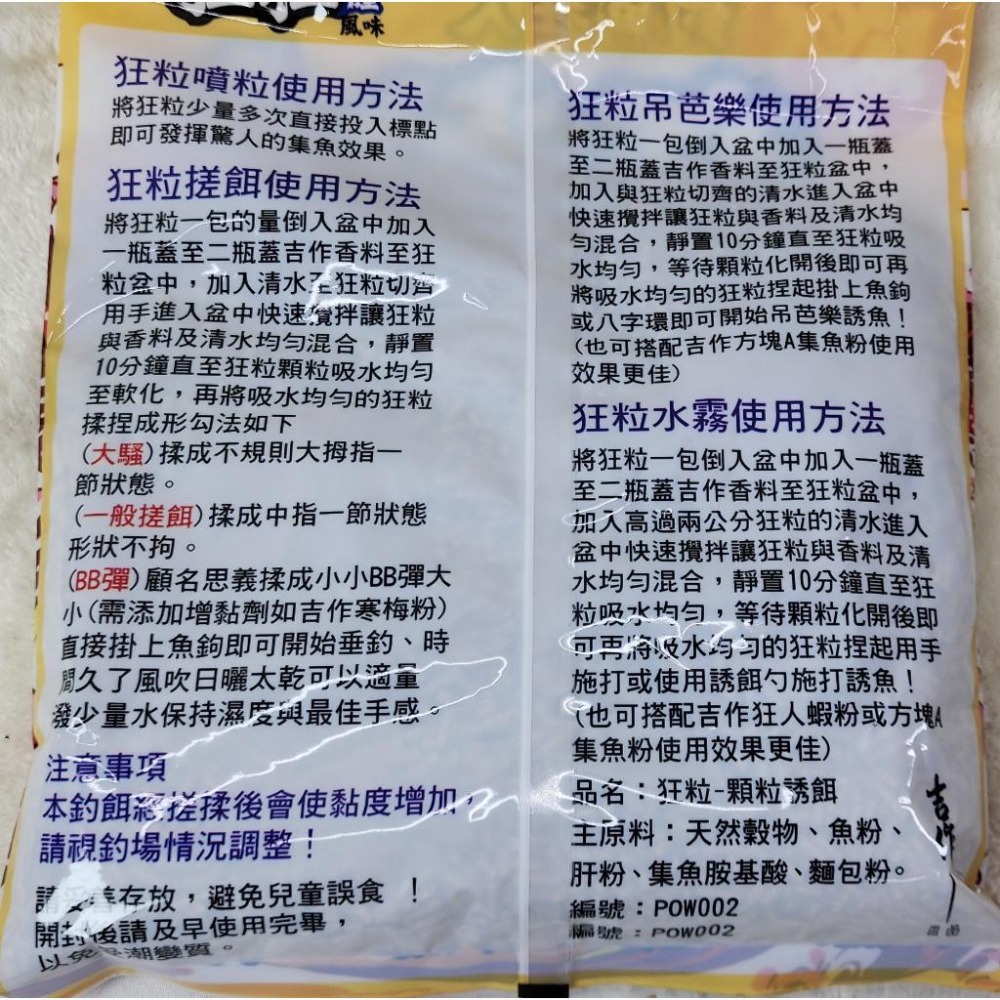 風味
狂粒噴粒使用方法
將狂粒少量多次直接投入標點
即可發揮驚人的集魚效果。
狂粒搓餌使用方法
將狂粒一包的量倒入盆中加入
一瓶蓋至二瓶蓋吉作香料至狂
粒盆中，加入清水至狂粒切齊
用手進入盆中快速攪拌讓狂粒
與香料及清水均勻混合，靜置
10分鐘直至狂粒顆粒吸水均勻
至軟化，再將吸水均勻的狂粒
揉捏成形勾法如下
(大騷)揉成不規則大拇指一
節狀態。
(一般搓餌)揉成中指一節狀態
形狀不拘。
(BB彈)顧名思義揉成小小BB彈大
小(需添加增黏劑如吉作寒梅粉)
直接掛上魚鉤即可開始垂釣、時
間久了風吹日曬太乾可以適量
發少量水保持濕度與最佳手感。
注意事項
本釣餌經搓揉後會使黏度增加，
請視釣場情況調整！
請妥善存放，避免兒童誤食 ！
開封後請及早使用完畢，
以免受潮變質。
狂粒吊芭樂使用方法
將狂粒一包倒入盆中加入一瓶蓋
至二瓶蓋吉作香料至狂粒盆中，
加入與狂粒切齊的清水進入盆中
快速攪拌讓狂粒與香料及清水均
勻混合，靜置10分鐘直至狂粒吸
水均勻，等待顆粒化開後即可再
將吸水均勻的狂粒捏起掛上魚鉤
或八字環即可開始吊芭樂誘魚！
(也可搭配吉作方塊A集魚粉使用
效果更佳)
狂粒水霧使用方法
將狂粒一包倒入盆中加入一瓶蓋
至二瓶蓋吉作香料至狂粒盆中，
加入高過兩公分狂粒的清水進入
盆中快速攪拌讓狂粒與香料及清
水均勻混合，靜置10分鐘直至狂
粒吸水均勻，等待顆粒化開後即
可再將吸水均勻的狂粒捏起用手
施打或使用誘餌勺施打誘魚！
(也可搭配吉作狂人蝦粉或方塊A
集魚粉使用效果更佳)
品名：狂粒-顆粒誘餌
主原料：天然穀物、魚粉、
肝粉、集魚胺基酸、麵包粉。
編號：POW002
編號：POW002
吉作